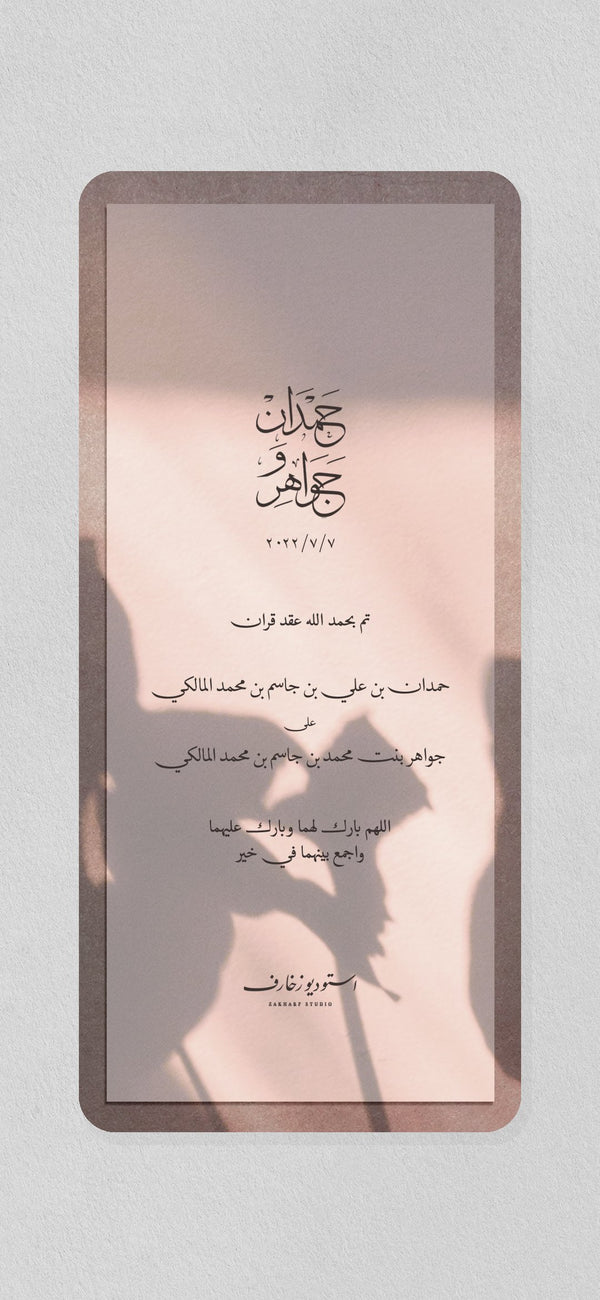 حَمْدَان
و
جَوَاهِر
٢٠٢٢/٧/٧
تم بحمد الله عقد قران
حمدان بن علي بن جاسم بن محمد المالكي
على
جواهر بنت محمد بن جاسم بن محمد المالكي
اللهم بارك لهما وبارك عليهما
واجمع بينهما في خير
استوديو زخارف
ZAKHARF STUDIO